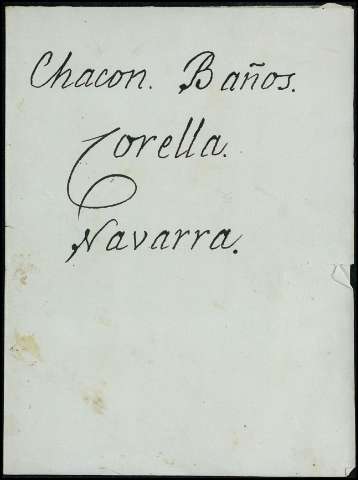 Chacon. Baños.
Corella.
Navarra.